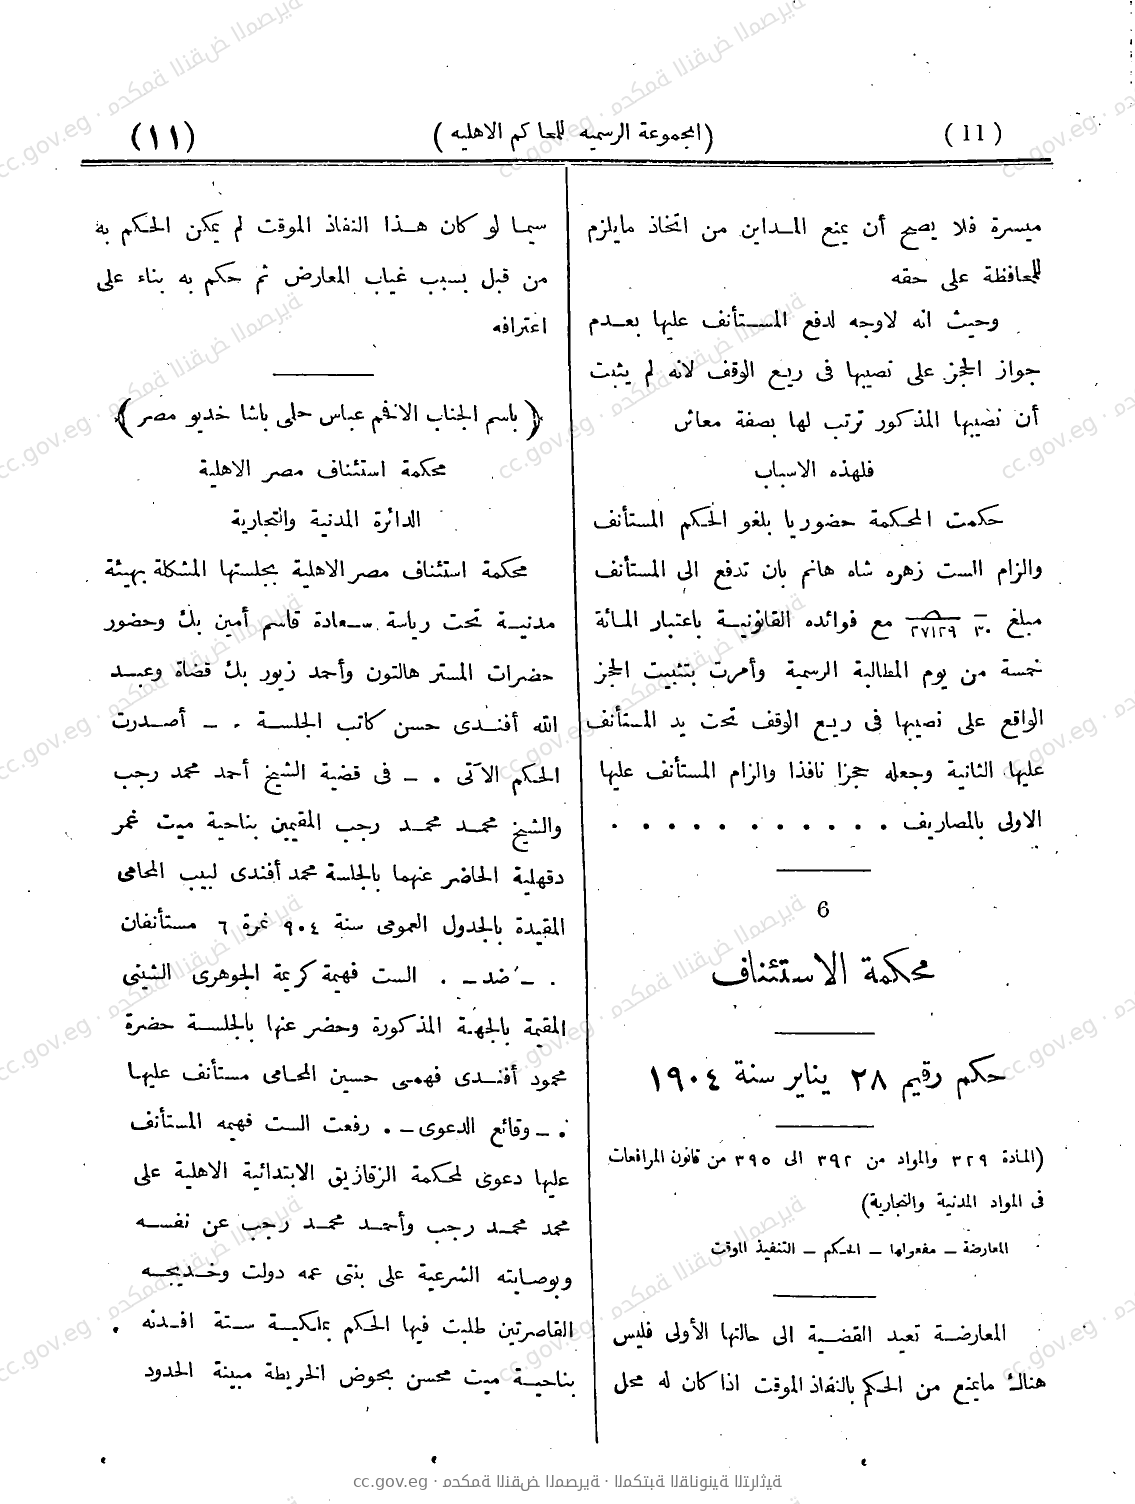 (11) (المجموعة الرسميه للمحاكم الاهليه) (١١)
ميسرة فلا يصح أن يمنع المداين من اتخاذ مايلزم
للمحافظة على حقه
وحيث انه لاوجه لدفع المستأنف عليها بعدم
جواز الحجز على نصيبها فى ريع الوقف لانه لم يثبت
أن نصيبها المذكور ترتب لها بصفة معاش
فلهذه الاسباب
حكمت المحكمة حضوريا بلغو الحكم المستأنف
والزام الست زهره شاه هانم بان تدفع الى المستأنف
مبلغ ٣٠ ٢٧١٢٩ مع فوائده القانونية باعتبار المائة
خمسة من يوم المطالبة الرسمية وأمرت بتثبيت الحجز
الواقع على نصيبها فى ريع الوقف تحت يد المستأنف
عليها الثانية وجعله حجزا نافذا والزام المستأنف عليها
الاولى بالمصاريف . . . . . . . . . . .
6
محكمة الاستئناف
حكم رقيم ٢٨ يناير سنة ١٩٠٤
(المادة ٣٢٩ والمواد من ٣٩٢ الى ٣٩٥ من قانون المرافعات
فى المواد المدنية والتجارية)
المعارضة – مفعولها – الحكم – التنفيذ الموقت
المعارضة تعيد القضية الى حالتها الأولى فليس
هناك مايمنع من الحكم بالنفاذ الموقت اذا كان له محل
سيما لو كان هذا النفاذ الموقت لم يكن الحكم به
من قبل بسبب غياب المعارض ثم حكم به بناء على
اعترافه
(باسم الجناب الافخم عباس حلمى باشا خديو مصر)
محكمة استئناف مصر الاهلية
الدائرة المدنية والتجارية
محكمة استئناف مصر الاهلية بجلستها المشكلة بهيئة
مدنية تحت رياسة سعادة قاسم أمين بك وحضور
حضرات المستر هالتون وأحمد زيور بك قضاة وعبد
الله أفندى حسن كاتب الجلسة . – أصدرت
الحكم الآتى . – فى قضية الشيخ أحمد محمد رجب
والشيخ محمد محمد رجب المقيمين بناحية ميت غمر
دقهلية الحاضر عنهما بالجلسة محمد أفندى لبيب المحامى
المقيدة بالجدول العمومى سنة ٩٠٤ نمرة ٦ مستأنفان
. – ضد – . الست فهيمة كريمة الجوهرى الشينى
المقيمة بالجهة المذكورة وحضر عنها بالجلسة حضرة
محمود أفندى فهمى حسين المحامى مستأنف عليها
. – وقائع الدعوى – . رفعت الست فهيمه المستأنف
عليها دعوى لمحكمة الزقازيق الابتدائية الاهلية على
محمد محمد رجب وأحمد محمد رجب عن نفسه
وبوصايته الشرعية على بنتى عمه دولت وخديجه
القاصرتين طلبت فيها الحكم بملكية ستة افدنه .
بناحية ميت محسن بحوض الخريطة مبينة الحدود
cc.gov.eg · محكمة النقض المصرية · المكتبة القانونية التراثية